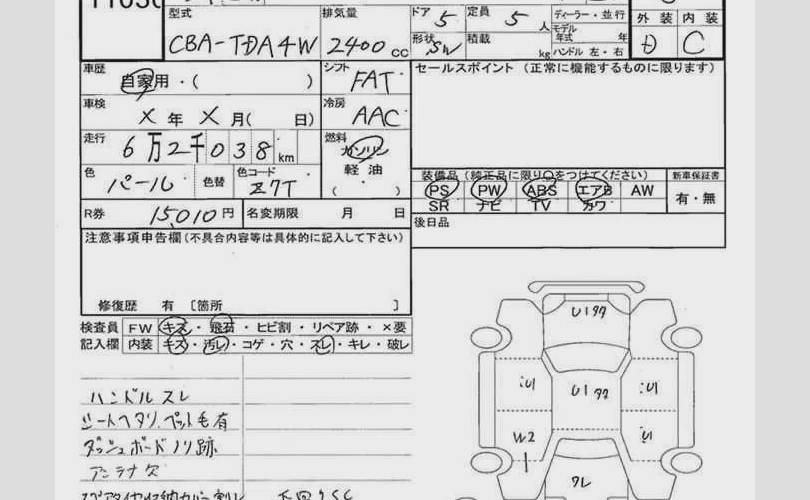 型式 排気量 ドア 5 定員 5 人 ディーラー・並行 外装 内装
CBA-TDA4W 2400 cc 形状 SW 積載 kg モデル年式 年 ハンドル 左・右 D C
車歴 自家用・( ) シフト FAT セールスポイント (正常に機能するものに限ります)
車検 X 年 X 月( 日) 冷房 AAC
走行 6万2千038 km 燃料 ガソリン
色 パール 色替 色コード Z7T 軽油 ( )
装備品 (純正品に限り○をつけてください) 新車保証書
PS PW ABS エアB AW 有・無
SR ナビ TV カワ
R券 15,010円 名変期限 月 日 後日品
注意事項申告欄 (不具合内容等は具体的に記入して下さい)
修復歴 有 〔箇所 〕
検査員 FW キズ・飛石・ヒビ割・リペア跡・×要
記入欄 内装 キズ・汚レ・コゲ・穴・スレ・キレ・破レ
ハンドルスレ
シートヘタリ、ペット毛有
ダッシュボードノリ跡
アンテナ欠
U1 クク
U1 U1 クク U1
W2 U1
クレ